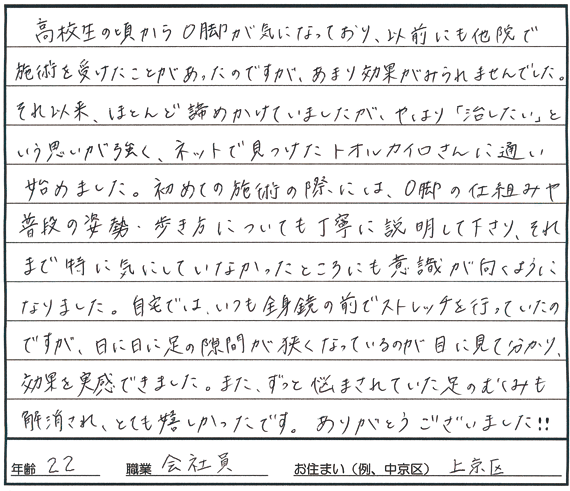 高校生の頃からO脚が気になっており、以前にも他院で
施術を受けたことがあったのですが、あまり効果がみられませんでした。
それ以来、ほとんど諦めかけていましたが、やはり「治したい」と
いう思いが強く、ネットで見つけたトオルカイロさんに通い
始めました。初めての施術の際には、O脚の仕組みや
普段の姿勢・歩き方についても丁寧に説明して下さり、それ
まで特に気にしていなかったところにも意識が向くように
なりました。自宅では、いつも全身鏡の前でストレッチを行っていたの
ですが、日に日に足の隙間が狭くなっているのが目に見て分かり、
効果を実感できました。また、ずっと悩まされていた足のむくみも
解消され、とても嬉しかったです。ありがとうございました!!
年齢 22 職業 会社員 お住まい(例、中京区) 上京区